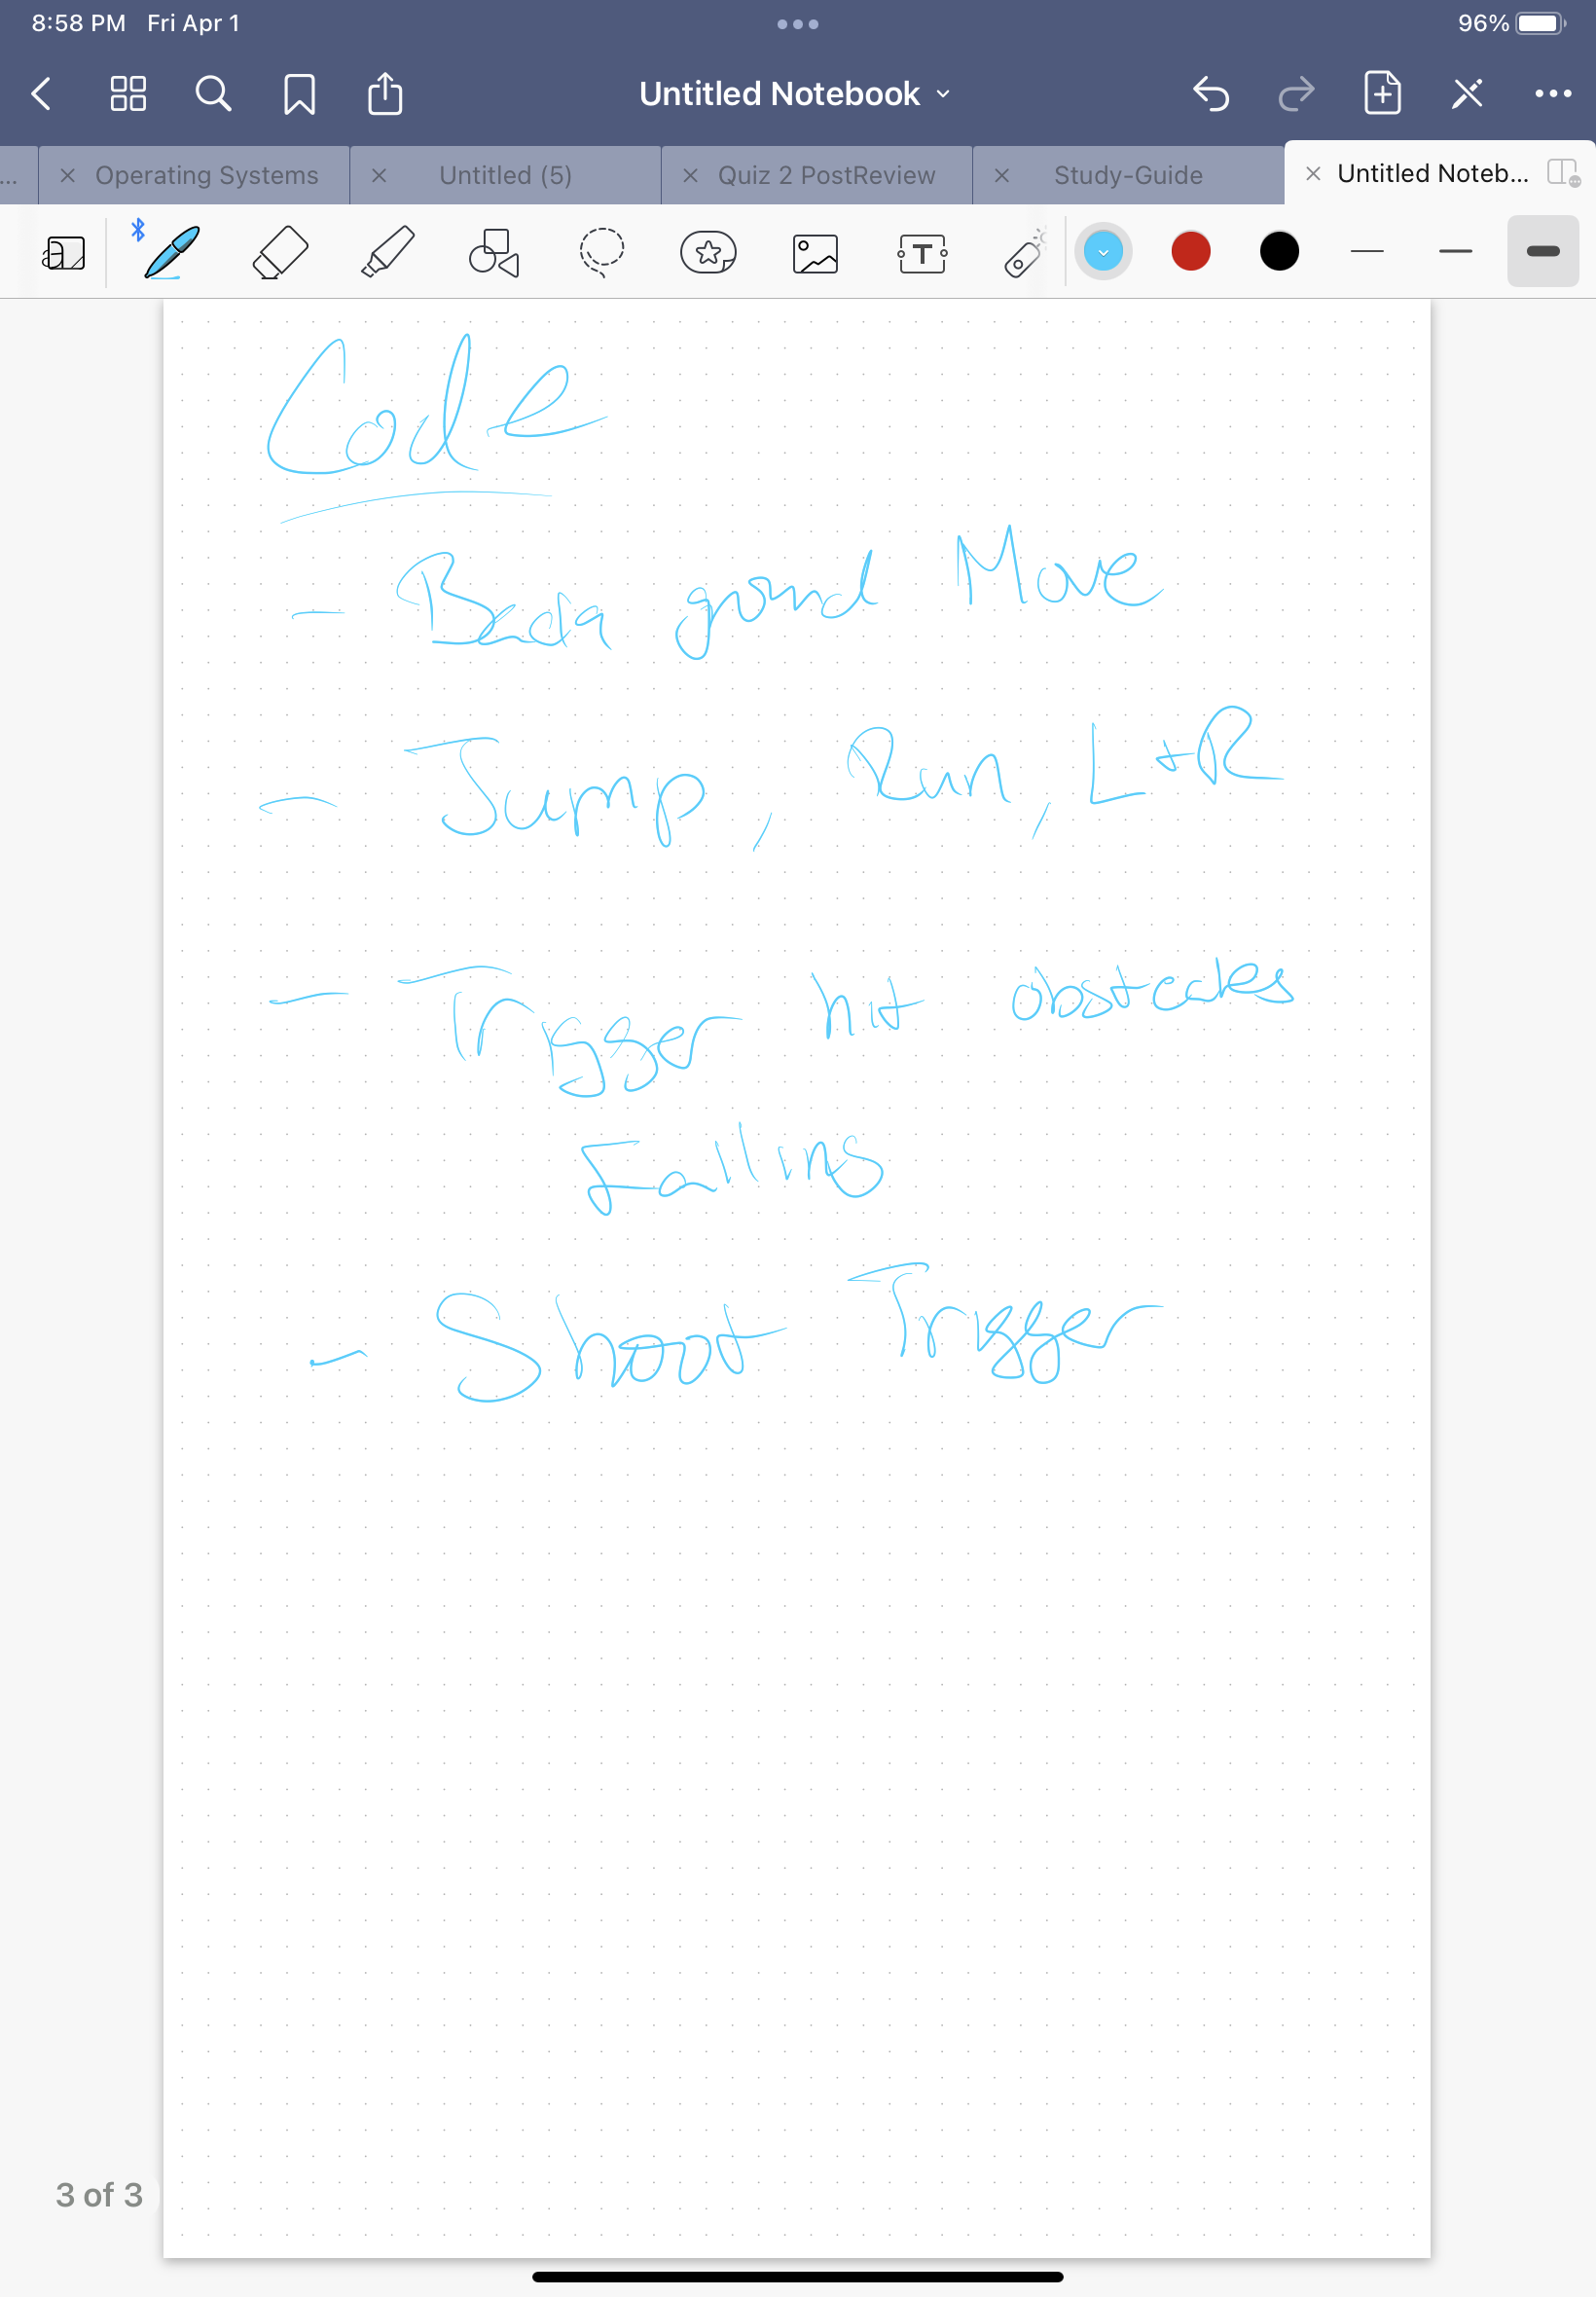 8:58 PM Fri Apr 1 96%
Untitled Notebook
... Operating Systems Untitled (5) Quiz 2 PostReview Study-Guide Untitled Noteb...
T
Code
- Back ground Move
- Jump, Run, L+R
- Trigger hit obstacles
Falling
- Shoot Trigger
3 of 3